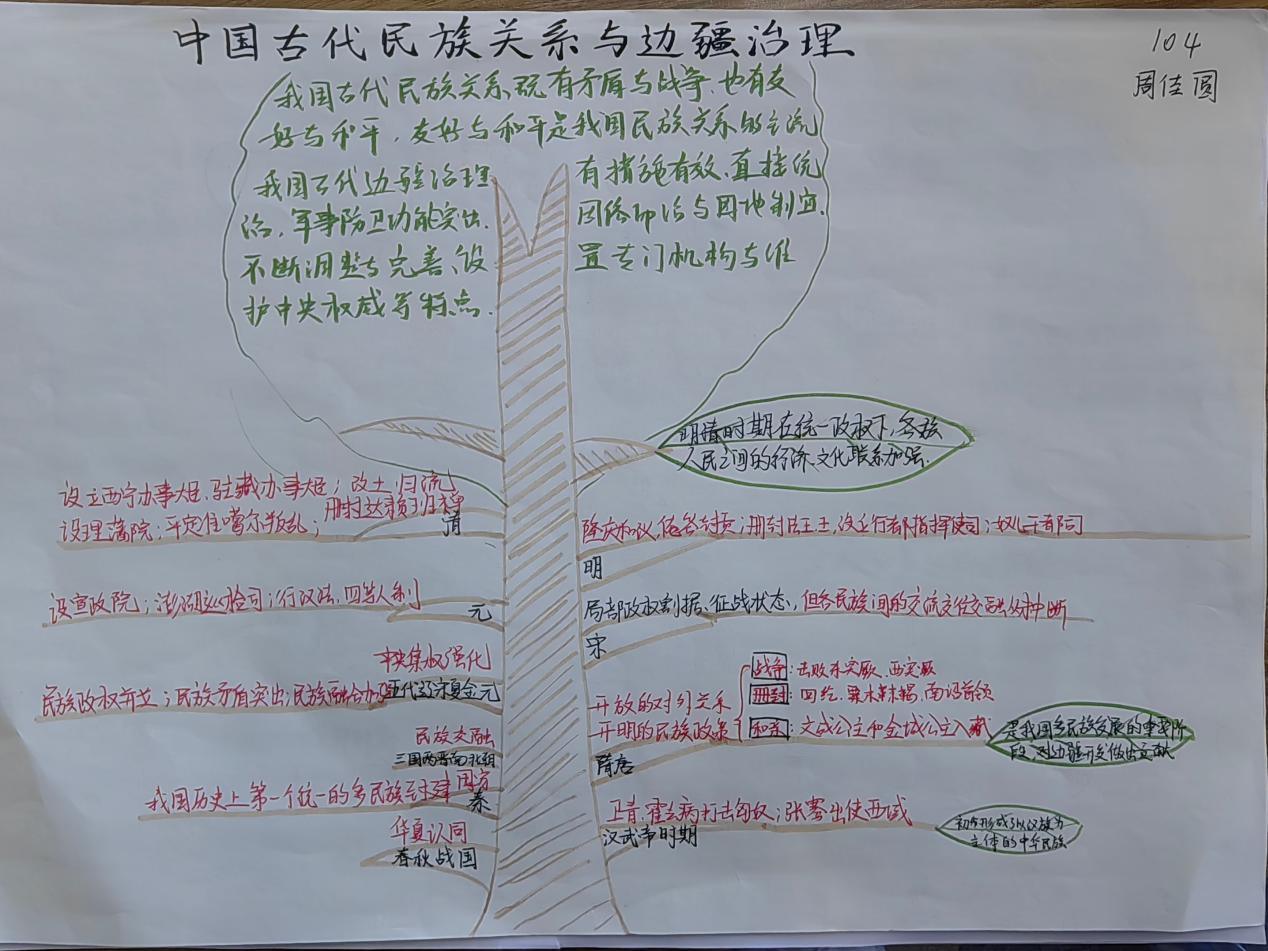 中国古代民族关系与边疆治理
104
周佳圆
我国古代民族关系既有矛盾与战争,也有友
好与和平,友好与和平是我国民族关系的主流
我国古代边疆治理 有措施有效、直接统
治,军事防卫功能突出, 因俗而治与因地制宜,
不断调整与完善、设 置专门机构与维
护中央权威等特点.
明清时期在统一政权下,各族
人民之间的经济、文化联系加强.
设立西宁办事大臣、驻藏办事大臣;改土归流
设理藩院;平定准噶尔叛乱;册封达赖
清
隆庆和议,俺答封贡;册封法王,设立行都指挥使司;奴儿干都司
明
设宣政院;澎湖巡检司;行汉法,四等人制
元
局部政权割据、征战状态,但各民族间的交流交往交融从未中断
宋
中央集权强化
民族政权并立;民族矛盾突出;民族融合加强
五代辽宋夏金元
开放的对外关系
开明的民族政策
战争:击败东突厥、西突厥
册封:回纥、粟末靺鞨、南诏首领
和亲:文成公主和金城公主入藏
隋唐
是我国多民族发展的重要阶
段,对边疆开发做出贡献
民族交融
三国两晋南北朝
我国历史上第一个统一的多民族封建国家
秦
卫青、霍去病打击匈奴;张骞出使西域
汉武帝时期
初步形成了以汉族为
主体的中华民族
华夏认同
春秋战国